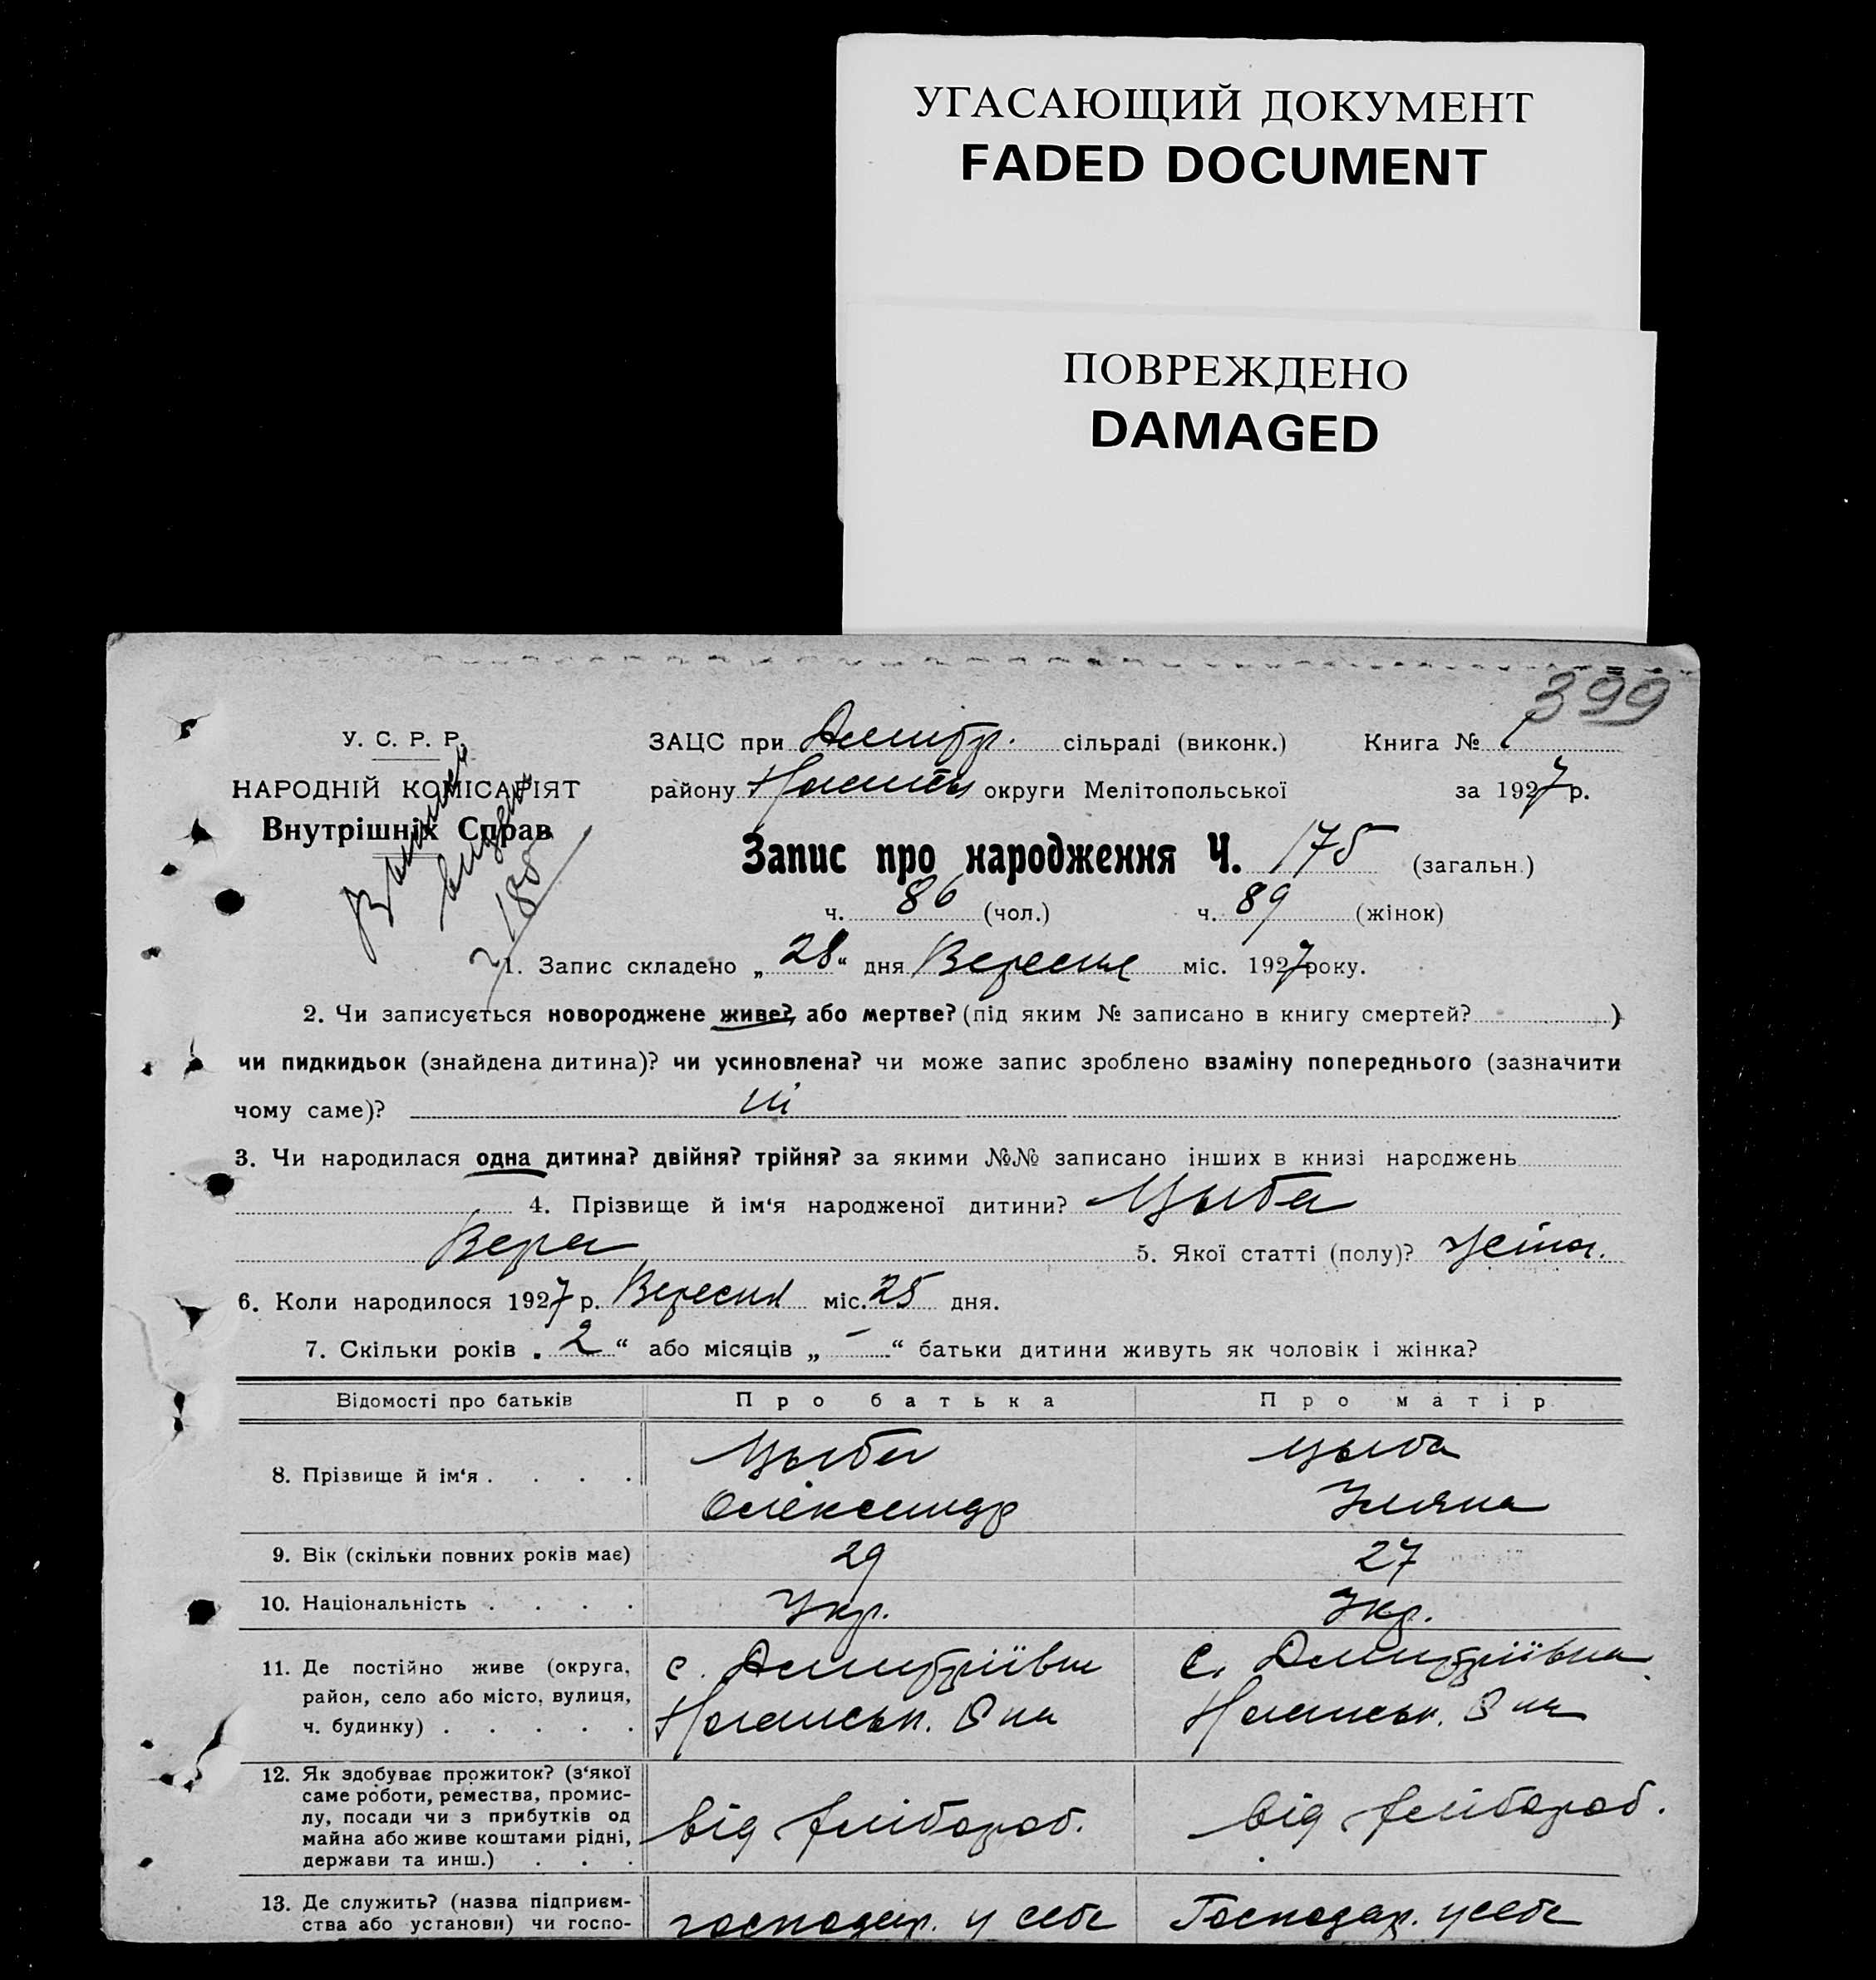 УГАСАЮЩИЙ ДОКУМЕНТ
FADED DOCUMENT
ПОВРЕЖДЕНО
DAMAGED
399
У. С. Р. Р.
НАРОДНІЙ КОМІСАРІЯТ
Внутрішніх Справ
ЗАЦС при Дмитр. сільраді (виконк.) Книга №
району округи Мелітопольської за 1927 р.
Запис про народження Ч. 175 (загальн.)
ч. 86 (чол.) ч. 89 (жінок)
1. Запис складено „ 28 “ дня Вересня міс. 1927 року.
2. Чи записується новороджене живе? або мертве? (під яким № записано в книгу смертей? )
чи пидкидьок (знайдена дитина)? чи усиновлена? чи може запис зроблено взаміну попереднього (зазначити
чому саме)? ні
3. Чи народилася одна дитина? двійня? трійня? за якими №№ записано інших в книзі народжень
4. Прізвище й ім‘я народженої дитини? Цыба
Вера 5. Якої статті (полу)?
6. Коли народилося 1927 р. Вересня міс. 25 дня.
7. Скільки років „ 2 “ або місяців „ - “ батьки дитини живуть як чоловік і жінка?
Відомості про батьків Про батька Про матір
8. Прізвище й ім‘я . . . . Цыба Цыба
Олександр Уляна
9. Вік (скільки повних років має) 29 27
10. Національність . . . . Укр. Укр.
11. Де постійно живе (округа, с. Дмитріївка с. Дмитріївка
район, село або місто, вулиця,
ч. будинку) . . . . .
12. Як здобуває прожиток? (з‘якої
саме роботи, ремества, промис-
лу, посади чи з прибутків од
майна або живе коштами рідні, від хлібороб. від хлібороб.
держави та инш.) . . .
13. Де служить? (назва підприєм-
ства або установи) чи госпо- господар. у себе Господар. у себе